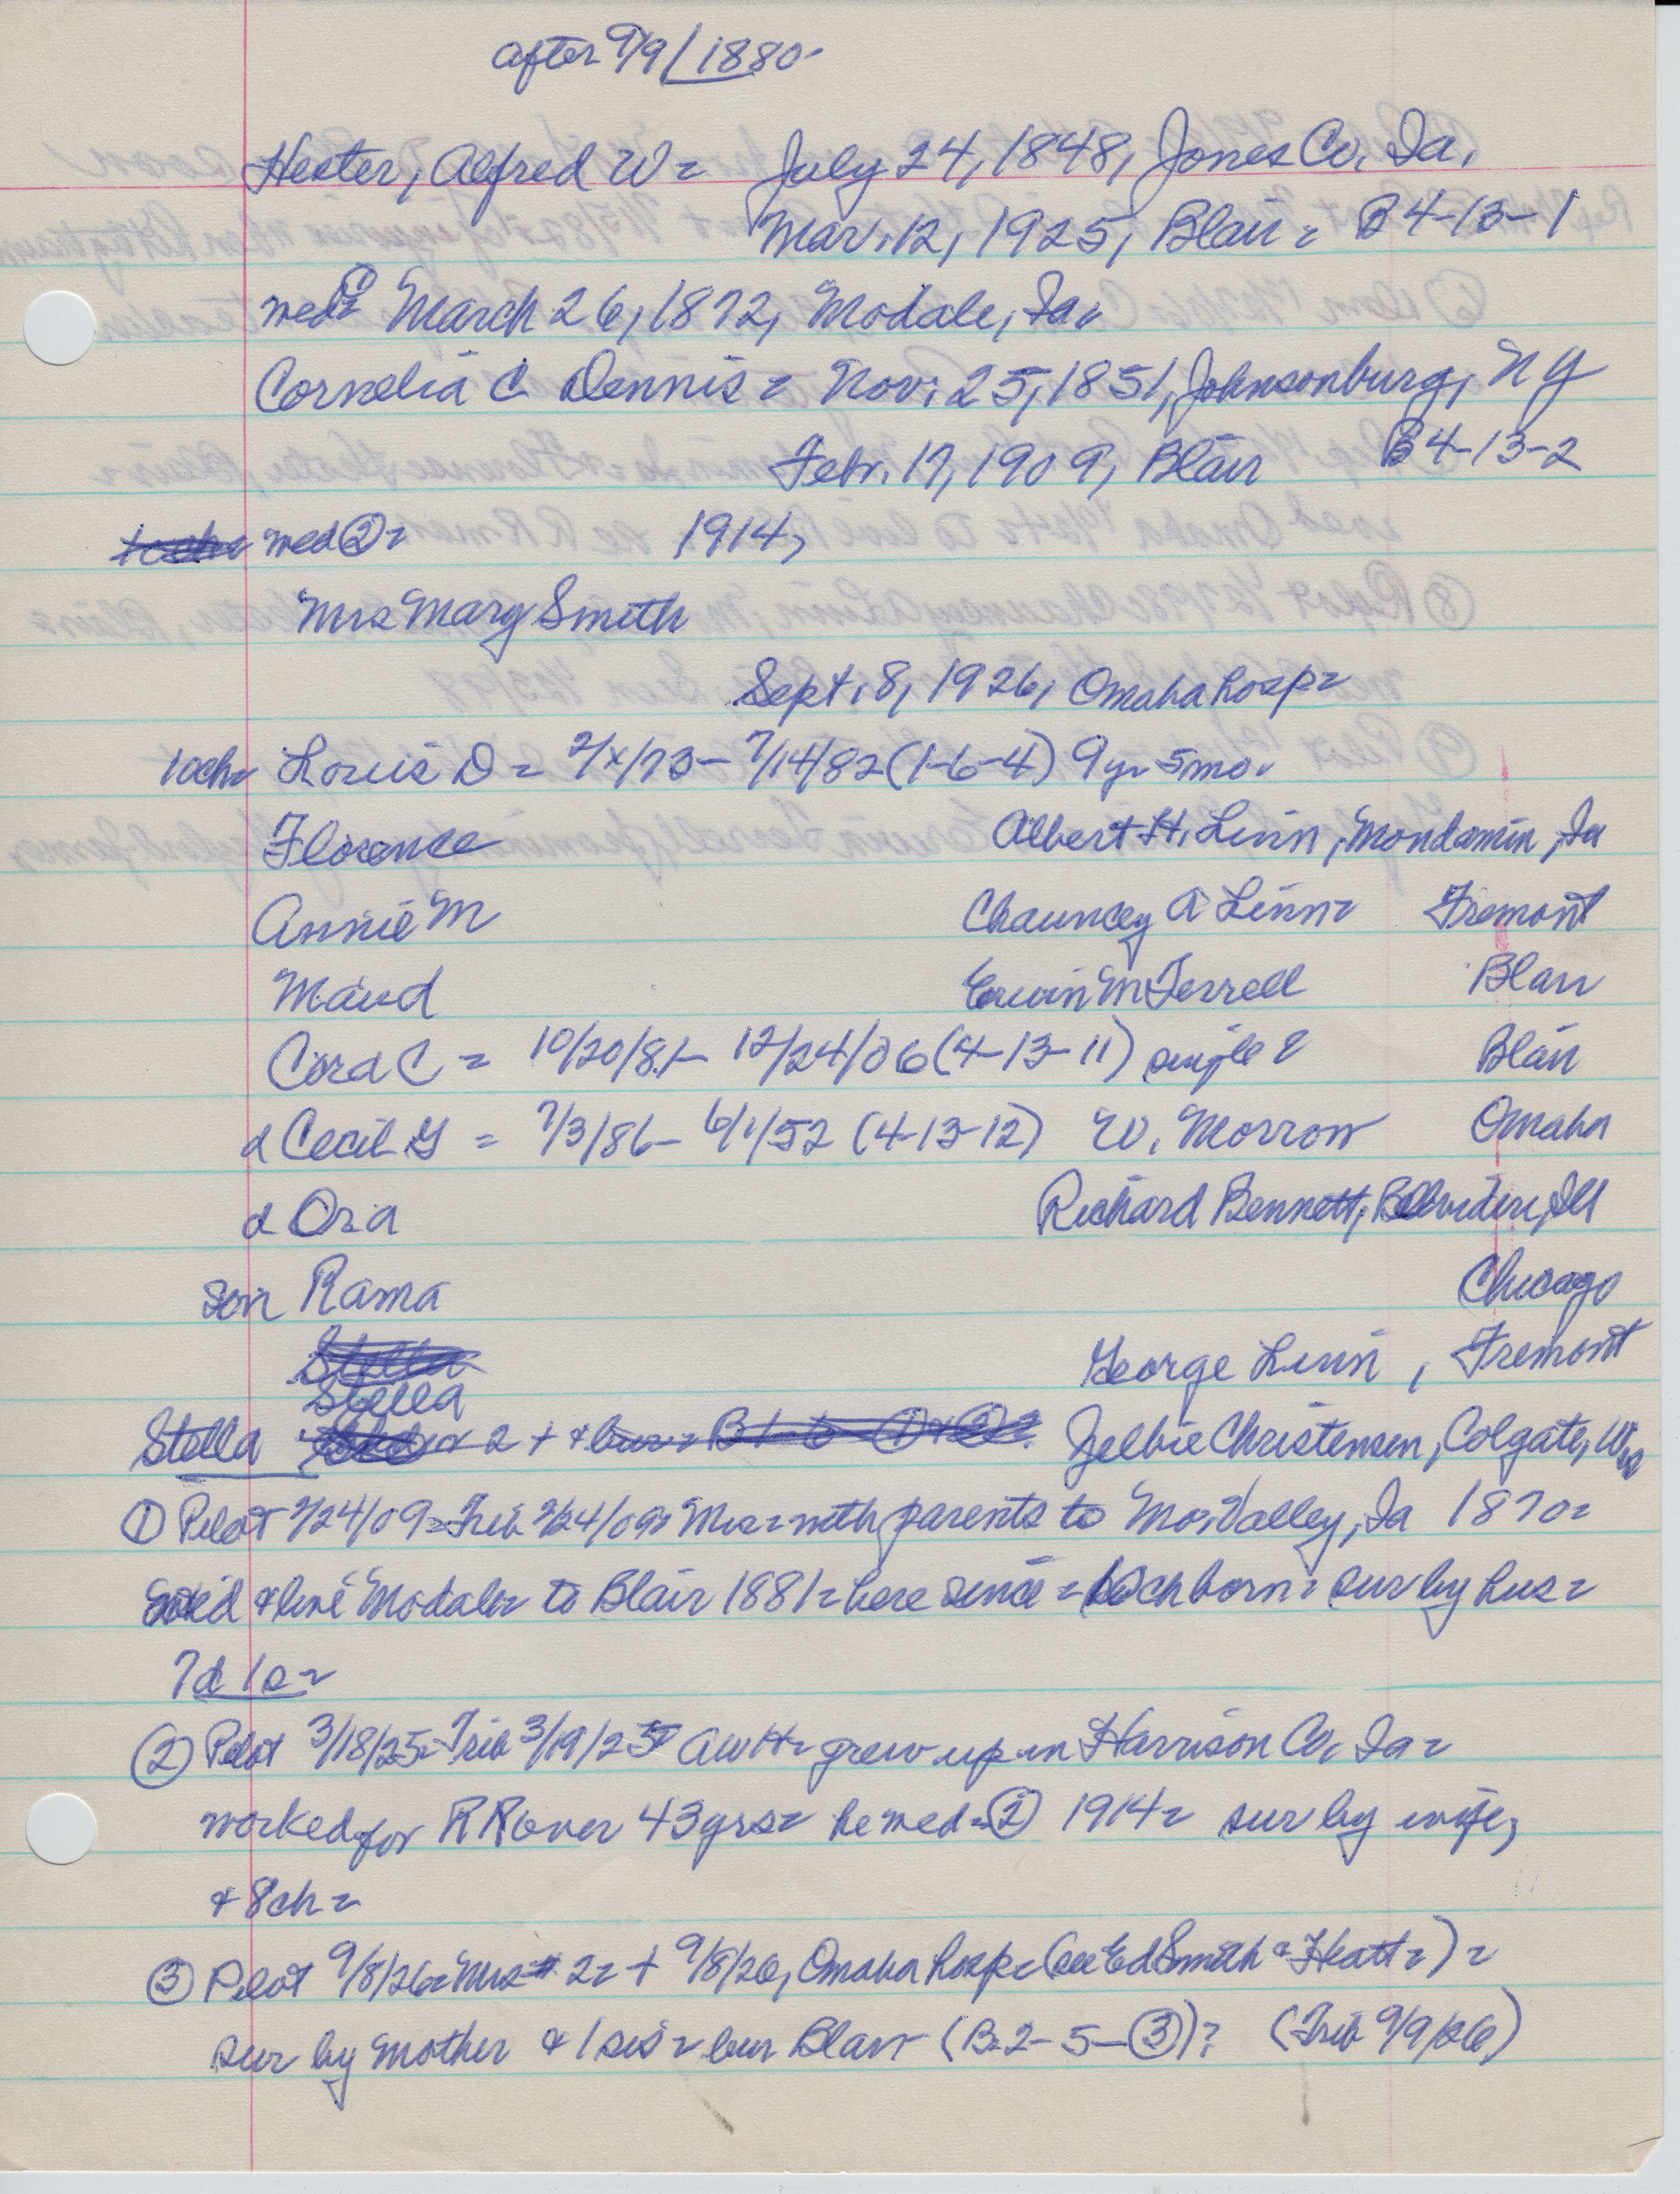 after 9/9/1880-
Hester, Alfred W = July 24, 1848, Jones Co, Ia,
Mar. 12, 1925, Blair = B 4-13-1
med ① = March 26, 1872, Modale, Ia,
Cornelia C Dennis = Nov. 25, 1851, Johnsonburg, NY
Febr. 17, 1909, Blair B 4-13-2
med ② = 1914,
Mrs Mary Smith
Sept. 8, 1926, Omaha hosp =
10ch = Louis D = 2/x/73 - 7/14/82 (1-6-4) 9yr 5mo.
Florence Albert H. Linn, Mondamin, Ia
Annie M Chauncey A Linn = Fremont
Maud Erwin M Ferrell Blair
Cora C = 10/20/81 - 12/24/06 (4-13-11) single? Blair
d Cecil G = 7/3/86 - 6/1/52 (4-13-12) W. Morrow Omaha
d Ora Richard Bennett, Belvidere, Ill
son Rama Chicago
Stella George Linn, Fremont
Stella
Stella 2 + + bur = B 1-6-①+②? Christensen, Colgate, Wis
① Pilot 2/24/09 = Trib 2/24/09 = Mrs = with parents to Mo. Valley, Ia 1870 =
& live Modale = to Blair 1881 = here since = 10ch born = sur by hus =
7d 1s =
② Pilot 3/18/25 = Trib 3/19/25 AWH = grew up in Harrison Co, Ia =
worked for RR over 43 yrs = he med = ② 1914 = sur by wife,
+ 8ch =
③ Pilot 9/8/26 = Mrs # 2 = + 9/8/26, Omaha hosp = (see Ed Smith & Hatt =) =
sur by mother & 1 sis = bur Blair (B. 2-5-③)? (Trib 9/9/26)